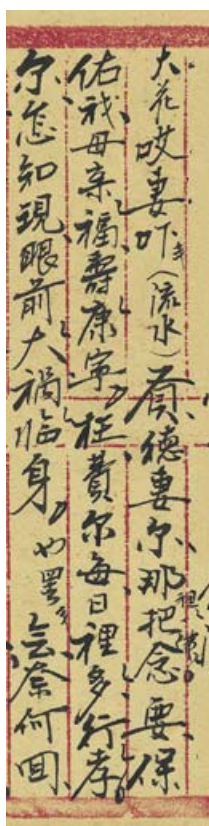 大花哎妻吓(流水)賢德妻尔那把念要保
佑我母亲福壽康寕枉費尔每日裡多行孝
尔怎知現眼前大禍临身也罢無奈何回